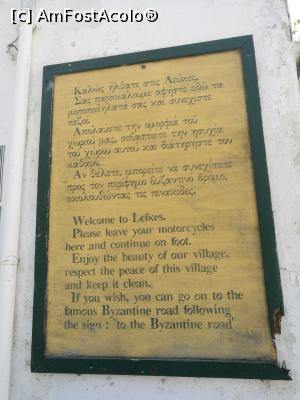 [c] AmFostAcolo®
Καλώς ήλθατε στις Λεύκες.
Σας παρακαλούμε αφήστε εδώ τα
μοτοποδήλατά σας και συνεχίστε
πεζοί.
Απολαύστε την ομορφιά του
χωριού μας, σεβαστείτε την ησυχία
του χώρου αυτού και διατηρήστε τον
καθαρό.
Αν θέλετε, μπορείτε να συνεχίσετε
προς τον περίφημο βυζαντινό δρόμο,
ακολουθώντας τις πινακίδες.
Welcome to Lefkes.
Please leave your motorcycles
here and continue on foot.
Enjoy the beauty of our village,
respect the peace of this village
and keep it clean.
If you wish, you can go on to the
famous Byzantine road following
the sign : "to the Byzantine road"